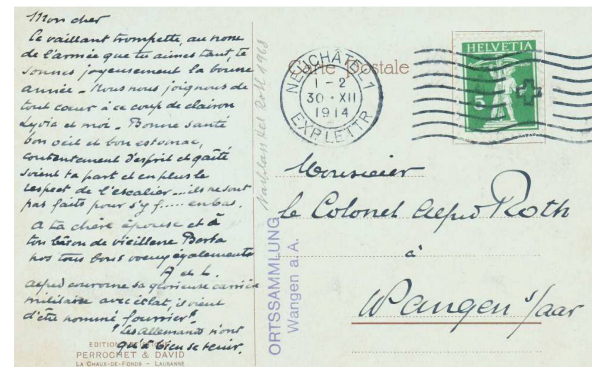 Mon cher
Ce vaillant trompette, au nom
de l'armée que tu aimes tant, te
sonnes joyeusement la bonne
année. Nous nous joignons de
tout cœur à ce coup de clairon
Lydia et moi. Bonne santé
bon œil et bon estomac,
contentement d'esprit et gaîté
soient ta part et en plus le
respect de l'escalier... ils ne sont
pas faits pour s'y f..... en bas.
A ta chère épouse et à
ton bâton de vieillesse Berta
nos tous bons vœux également
A et L.
Alfred couronne sa glorieuse carrière
militaire avec éclat, il vient
d'être nommé fourrier!
Les Allemands n'ont
qu'à bien se tenir.
EDITION
PERROCHET & DAVID
LA CHAUX-DE-FONDS - LAUSANNE
Nachlass
1963
ORTSSAMMLUNG
Wangen a. A.
Carte postale
NEUCHÂTEL 1
1 - 2
30 · XII
1914
EXP. LETTR.
HELVETIA
5
Monsieur
le Colonel Alfred Roth
à
Wangen s/aar